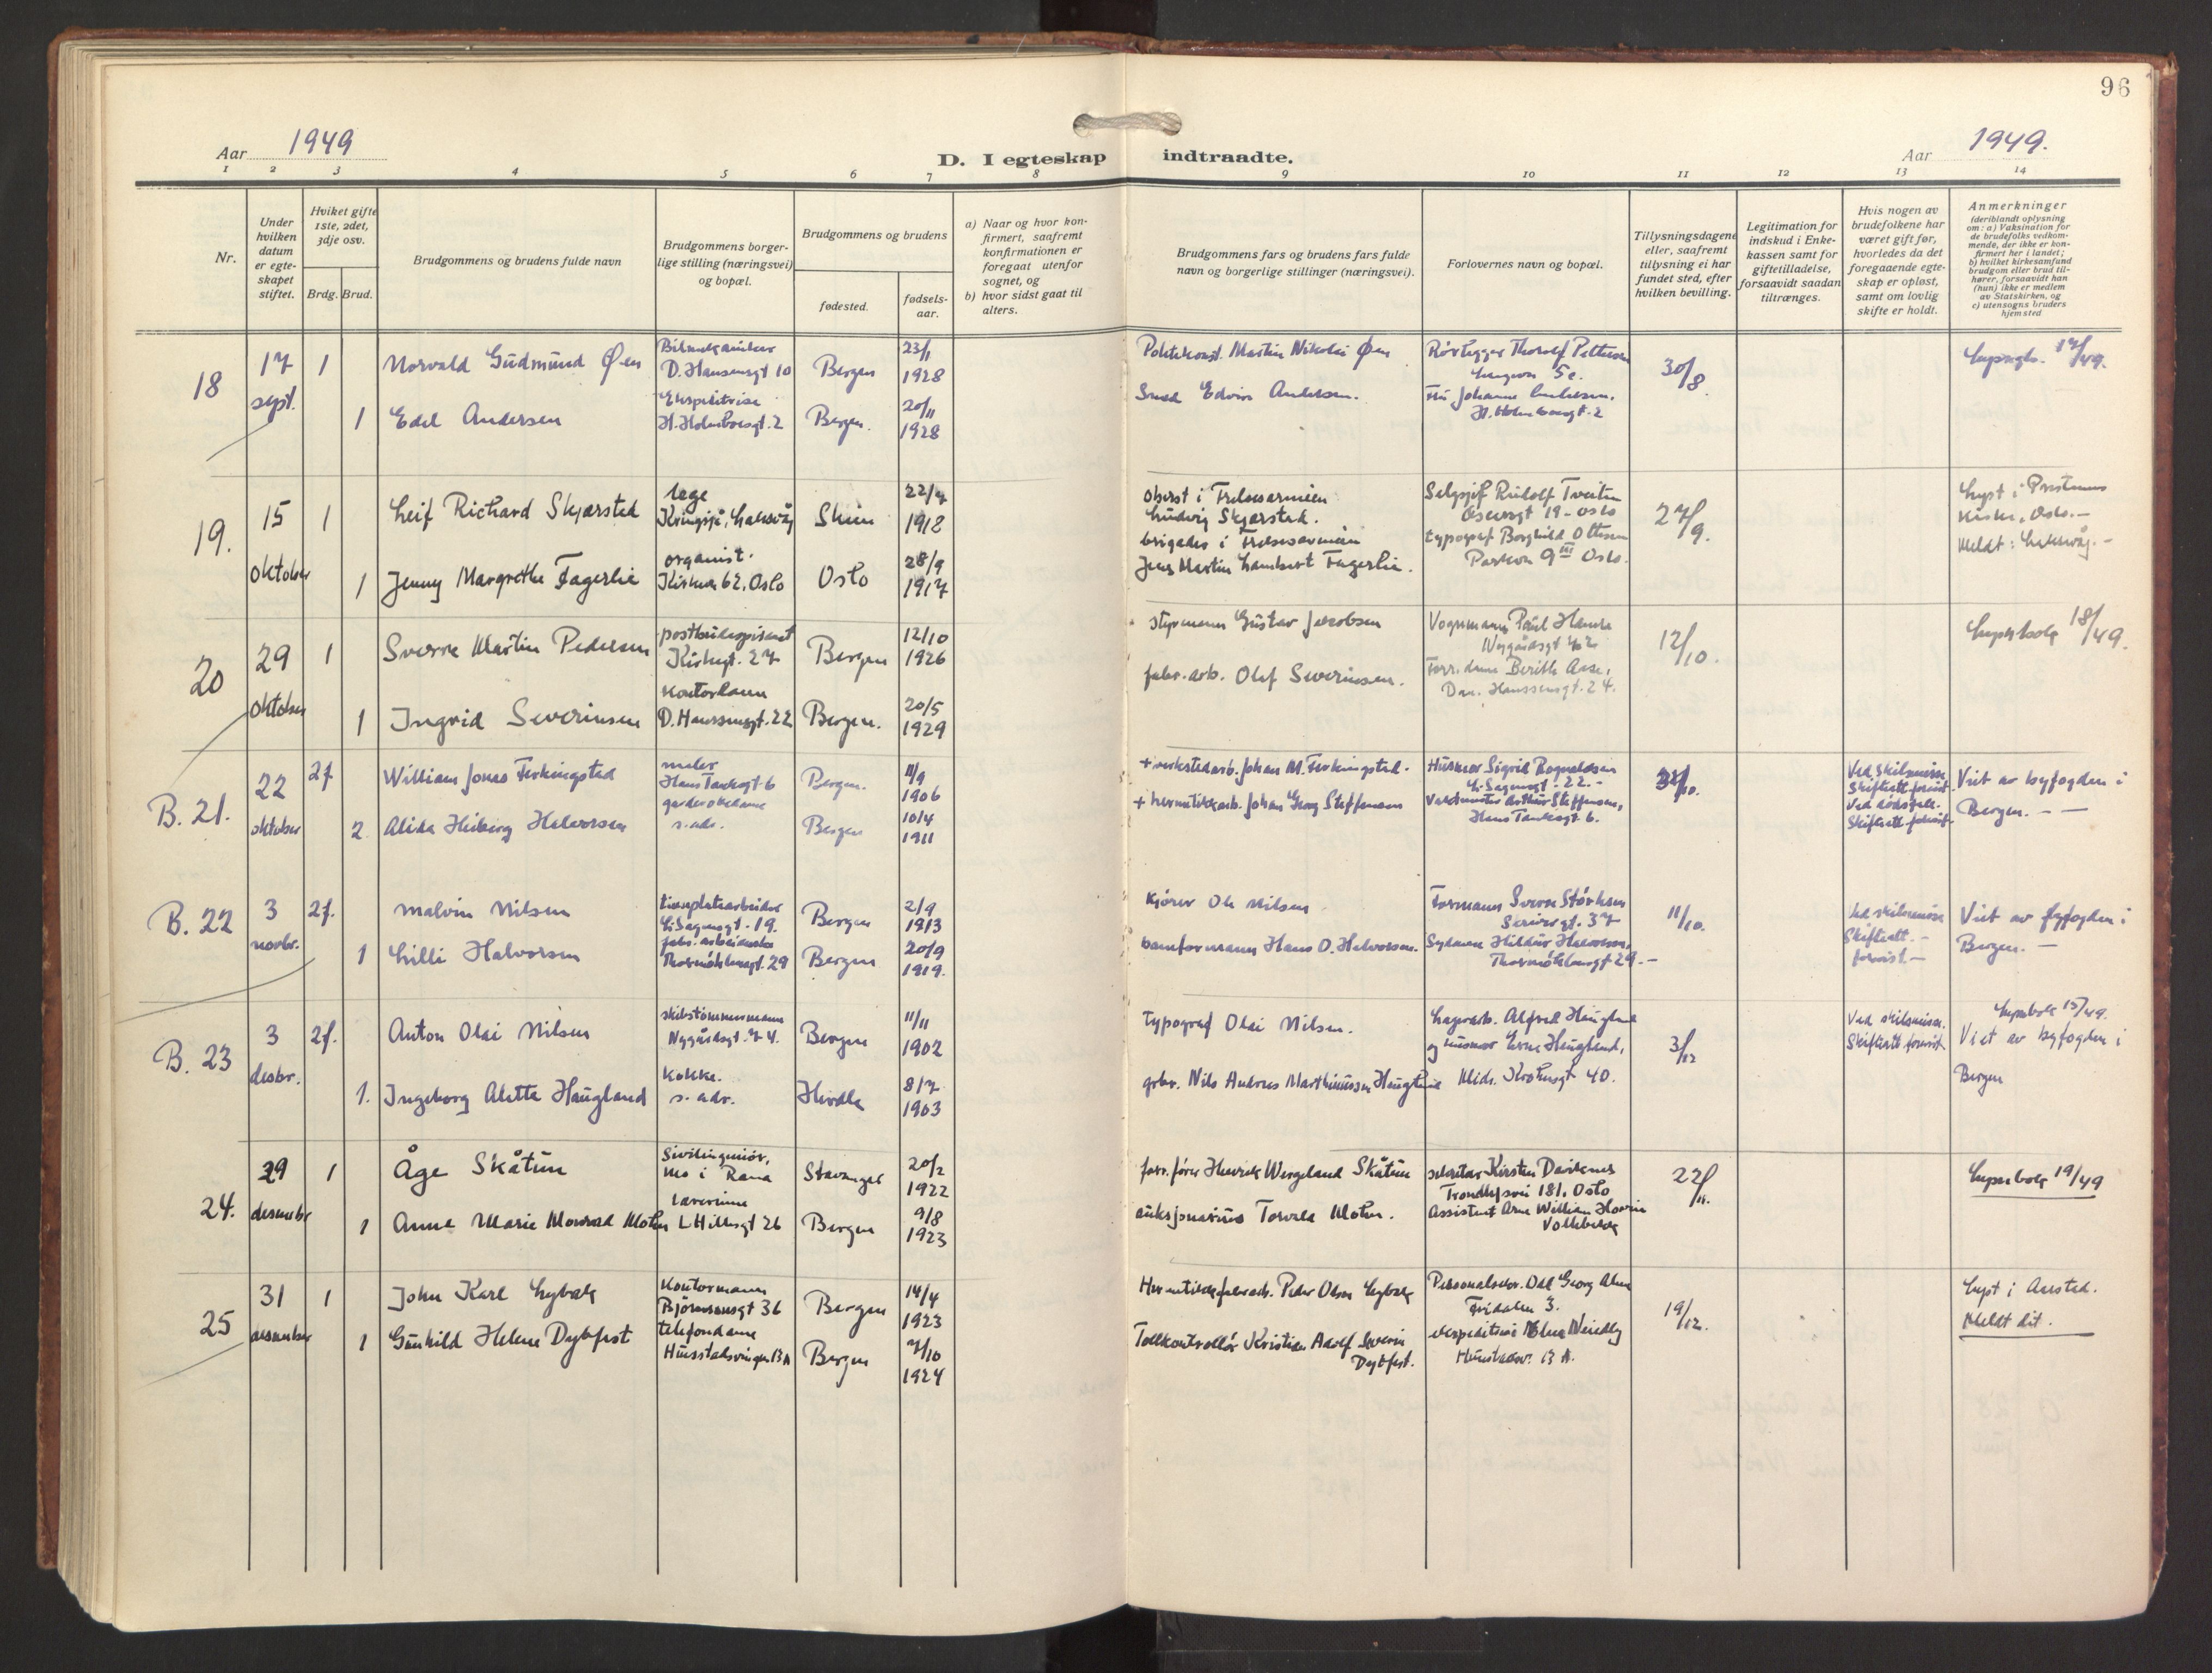 96
Aar 1949
D. I egteskap indtraadte.
Aar 1949.
1 2 3 4 5 6 7 8 9 10 11 12 13 14
Nr.
Under hvilken datum er egteskapet stiftet.
Hviket gifte 1ste, 2det, 3dje osv.
Brdg. Brud.
Brudgommens og brudens fulde navn
Brudgommens borgerlige stilling (næringsvei) og bopæl.
Brudgommens og brudens
fødested.
fødselsaar.
a) Naar og hvor konfirmert, saafremt konfirmationen er foregaat utenfor sognet, og
b) hvor sidst gaat til alters.
Brudgommens fars og brudens fars fulde navn og borgerlige stillinger (næringsvei).
Forlovernes navn og bopæl.
Tillysningsdagene eller, saafremt tillysning ei har fundet sted, efter hvilken bevilling.
Legitimation for indskud i Enkekassen samt for giftetilladelse, forsaavidt saadan tiltrænges.
Hvis nogen av brudefolkene har været gift før, hvorledes da det foregaaende egteskap er opløst, samt om lovlig skifte er holdt.
Anmerkninger (deriblandt oplysning om: a) Vaksination for de brudefolks vedkommende, der ikke er konfirmert her i landet; b) hvilket kirkesamfund brudgom eller brud tilhører, forsaavidt han (hun) ikke er medlem av Statskirken, og c) utensogns bruders hjemsted
18
17 sept.
1
Norvald Gudmund Øen
Bilmekaniker
D. Hansensgt 10
Bergen
23/1 1928
Martin Nikolai Øen
Rørlegger Thorolf Pettersen
30/8
1
Edel Andersen
Ekspeditrise
H. Holmboesgt. 2
Bergen.
20/11 1928
Smed Edvin Andersen.
Fru Johanne Andersen.
H. Holmboesgt. 2
19.
15 oktober
1
Leif Richard Skjærsted
lege
Kringsjå, Laksevåg
Skien
22/7 1918
oberst i Frelsesarmeen
Ludvig Skjærsted.
Salgssjef Rudolf Tveiten
Oscarsgt 19 - Oslo
27/9.
Lyst i
kirke, Oslo.—
Meldt: Laksevåg.—
1
Jenny Margrethe Fagerlie
organist.
Kirkevn 62, Oslo
Oslo
28/9 1917
brigader i Frelsesarmeen
Jens Martin Lambert Fagerlie.
typograf Borghild Ottesen
Parkvn 9 III Oslo.
20
29 oktober
1
Sverre Martin Pedersen
Kirkegt. 27
Bergen
12/10 1926
styrmann Gustav Jacobsen
Vognmann Paul Hansen
Nygårdsgt 42
12/10.
18/49.
1
Ingrid Severinsen
Kontordame
D. Hanssensgt. 22
Bergen.
20/5 1929
fabr. arb. Olaf Severinsen.
Forr. dame Berith Aase,
Dan. Hanssensgt. 24.
B. 21.
22 oktober
2f
William Jonas Ferkingstad
maler
Hans Tanksgt 6
Bergen.
11/9 1906
+ verkstedarb. Johan M. Ferkingstad.
Husmor Sigrid Rognaldsen
L. Sagensgt. 22.—
Ved skilsmisse
Skifteatt. forevist.
Viet av byfogden i
Bergen. — —
2.
Alida Heiberg Halvorsen
garderobedame
s. adr.
Bergen
10/4 1911
+ hermetikkarb. Johan Georg Steffensen
Vaktmester Arthur Steffensen,
Hans Tanksgt 6.
Ved dødsfall.
Skifteatt. forevist.
B. 22
3 novbr.
2f.
Malvin Nilsen
L. Sagensgt. 19.
Bergen
2/9 1913
Kjører Ole Nilsen
Formann Sverre Størksen
Skrivergt. 37
11/10.
Ved skilsmisse
Skifteatt.—
forevist.—
Viet av byfogden i
Bergen.—
1
Lilli Halvorsen
fabr. arbeiderske
Thormøhlensgt. 29
Bergen
20/9 1919.
baneformann Hans O. Halvorsen.
Sydame Hildur Halvorsen,
Thormøhlensgt 29.—
B. 23
3 desbr.
2f.
Anton Olai Nilsen
skibstømmermann
Nygårdsgt. 74.
Bergen
11/11 1902
typograf Olai Nilsen.
Lagerarb. Alfred Haugland
og husmor Erna Haugland,
3/12
Ved skilsmisse.
Skifteatt forevist.
15/49.
Viet av byfogden i
Bergen
1.
Ingeborg Aletta Haugland
Kokke.
s. adr.
Herdla
8/7 1903
grbr. Nils Andreas Marthinussen Haugland
Mich. Krohnsgt 40.
24.
29 desember
1
Åge Skåtun
Sivilingeniør,
Mo i Rana
Stavanger
20/2 1922
forr. fører Henrik Wergeland Skåtun
sekretær Kirsten Davidsen
Trondhjsvei 181, Oslo
22/11.
19/49
1
Anna Marie Monrad Mohn
Lærerinne
L. Hillesgt 26
Bergen
9/8 1923
auksjonarius Torvald Mohn.
Assistent Arne William
25
31 desember
1
John Karl Lybæk
Kontormann
Bjørnsonsgt 36
Bergen
14/4 1923
Peder Olsen Lybæk
Odd Georg
Fridalen 3.
19/12.
Lyst i Årstad.
Meldt dit.
1
Gunhild Helene Dybfest
telefondame
13 A
Bergen
7/10 1924
Tollkontrollør Kristian Adolf Severin
Dybfest.
13 A.